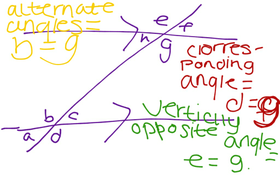 alternate
angles=
b = g
e
f
h
g
corres-
ponding
angle=
d=g
b
c
a
d
verticlly
opposite
angle=
e = g.